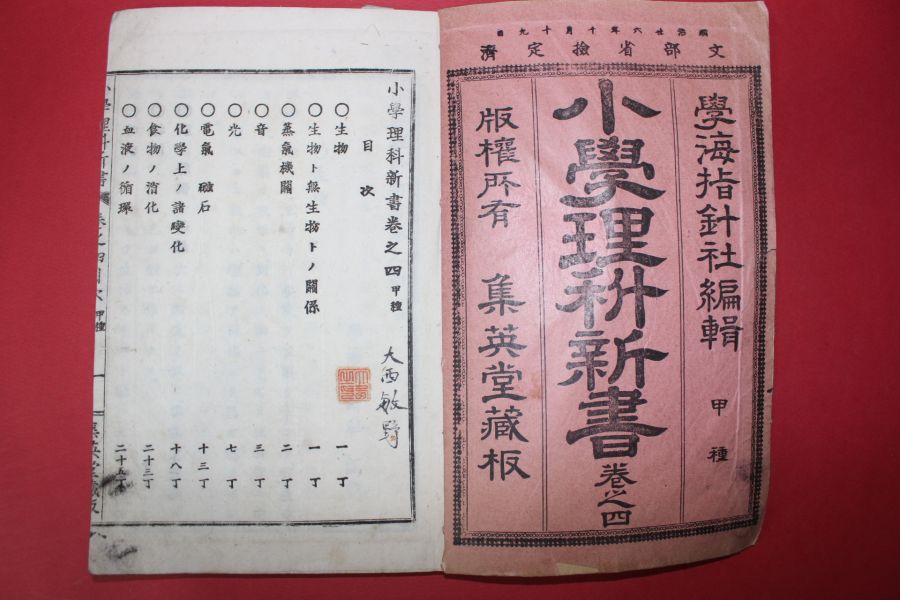 明治廿六年十月十九日
文部省檢定濟
學海指針社編輯 甲種
小學理科新書 卷之四
版權所有 集英堂藏板
小學理科新書卷之四 甲種
目次
大西敏野
○生物 一丁
○生物ト無生物トノ關係 一丁
○蒸氣機關 二丁
○音 三丁
○光 七丁
○電氣 磁石 十三丁
○化學上ノ諸變化 十八丁
○食物ノ消化 二十三丁
○血液ノ循環 二十五丁
小學理科新書 卷之四目次 甲種 一 集英堂藏版